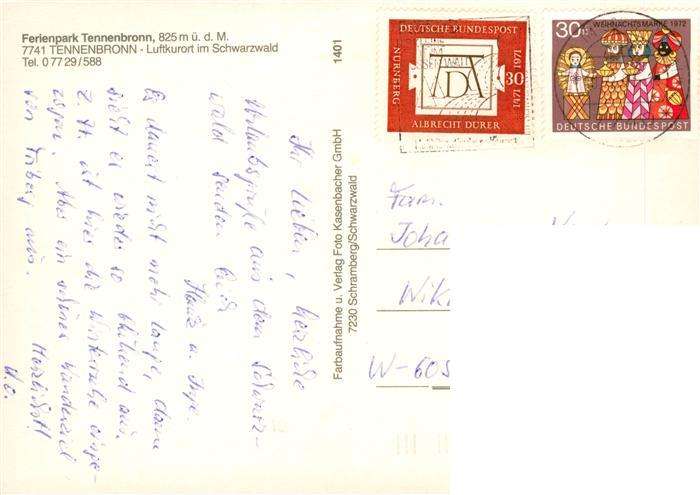 Ferienpark Tennenbronn, 825 m ü. d. M.
7741 TENNENBRONN - Luftkurort im Schwarzwald
Tel. 0 77 29 / 588
1401
Farbaufnahme u. Verlag Foto Kasenbacher GmbH
7230 Schramberg/Schwarzwald
DEUTSCHE BUNDESPOST
NÜRNBERG
AD
30
1471 1971
ALBRECHT DÜRER
30+15
WEIHNACHTSMARKE 1972
DEUTSCHE BUNDESPOST
Ihr Lieben, herzliche
Urlaubsgrüße aus dem Schwarz-
wald senden Euch
Hans u. Inge.
Es dauert nicht mehr lange, dann
sieht es wieder so blühend aus.
Z. Zt. ist hier die Winterruhe einge-
Aber ein schönes Wanderziel
von Triberg aus. Herzlichst!
Fam.
Joha
Wik
W-605